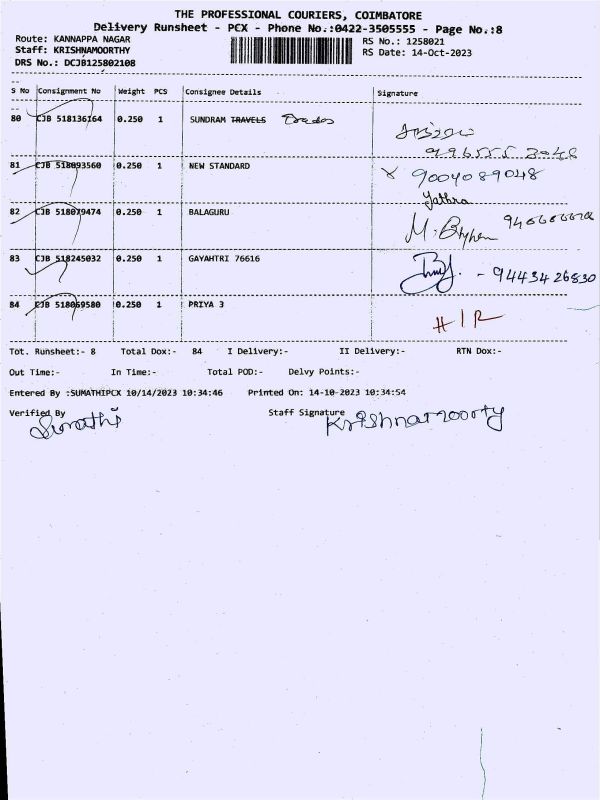 THE PROFESSIONAL COURIERS, COIMBATORE
Delivery Runsheet - PCX - Phone No.:0422-3505555 - Page No.:8
Route: KANNAPPA NAGAR
Staff: KRISHNAMOORTHY
DRS No.: DCJB125802108
RS No.: 1258021
RS Date: 14-Oct-2023
S No Consignment No Weight PCS Consignee Details Signature
80 CJB 518136164 0.250 1 SUNDRAM TRAVELS Trades
81 CJB 518093560 0.250 1 NEW STANDARD 9004089048
82 CJB 518079474 0.250 1 BALAGURU
83 CJB 518245032 0.250 1 GAYAHTRI 76616 - 9443426830
84 CJB 518069580 0.250 1 PRIYA 3 H I R
Tot. Runsheet:- 8 Total Dox:- 84 I Delivery:- II Delivery:- RTN Dox:-
Out Time:- In Time:- Total POD:- Delvy Points:-
Entered By :SUMATHIPCX 10/14/2023 10:34:46 Printed On: 14-10-2023 10:34:54
Verified By Staff Signature
Sumathi Krishnamoorty